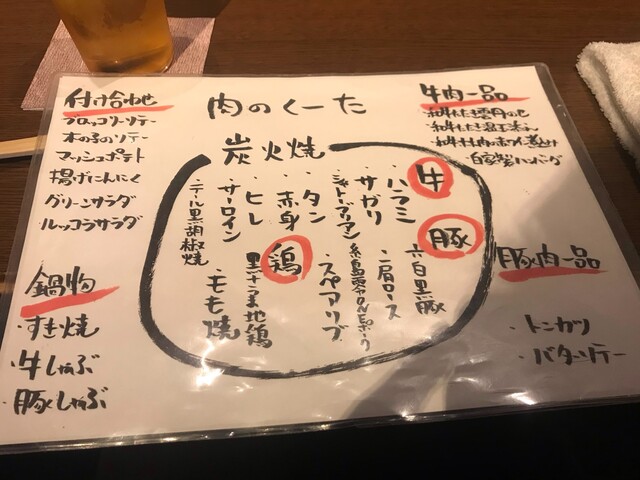 肉のくーた
付け合わせ
ブロッコリーソテー
木の子のソテー
マッシュポテト
揚げにんにく
グリーンサラダ
ルッコラサラダ
鍋物
・すき焼
・牛しゃぶ
・豚しゃぶ
炭火焼
牛
・ハラミ
・サガリ
・シャトーブリアン
・タン
・赤身
・ヒレ
・サーロイン
・テール黒胡椒焼
豚
六白黒豚
・肩ロース
・スペアリブ
鶏
黒さつま地鶏
・もも焼
牛肉一品
・自家製ハンバーグ
豚肉一品
・トンカツ
・バターソテー